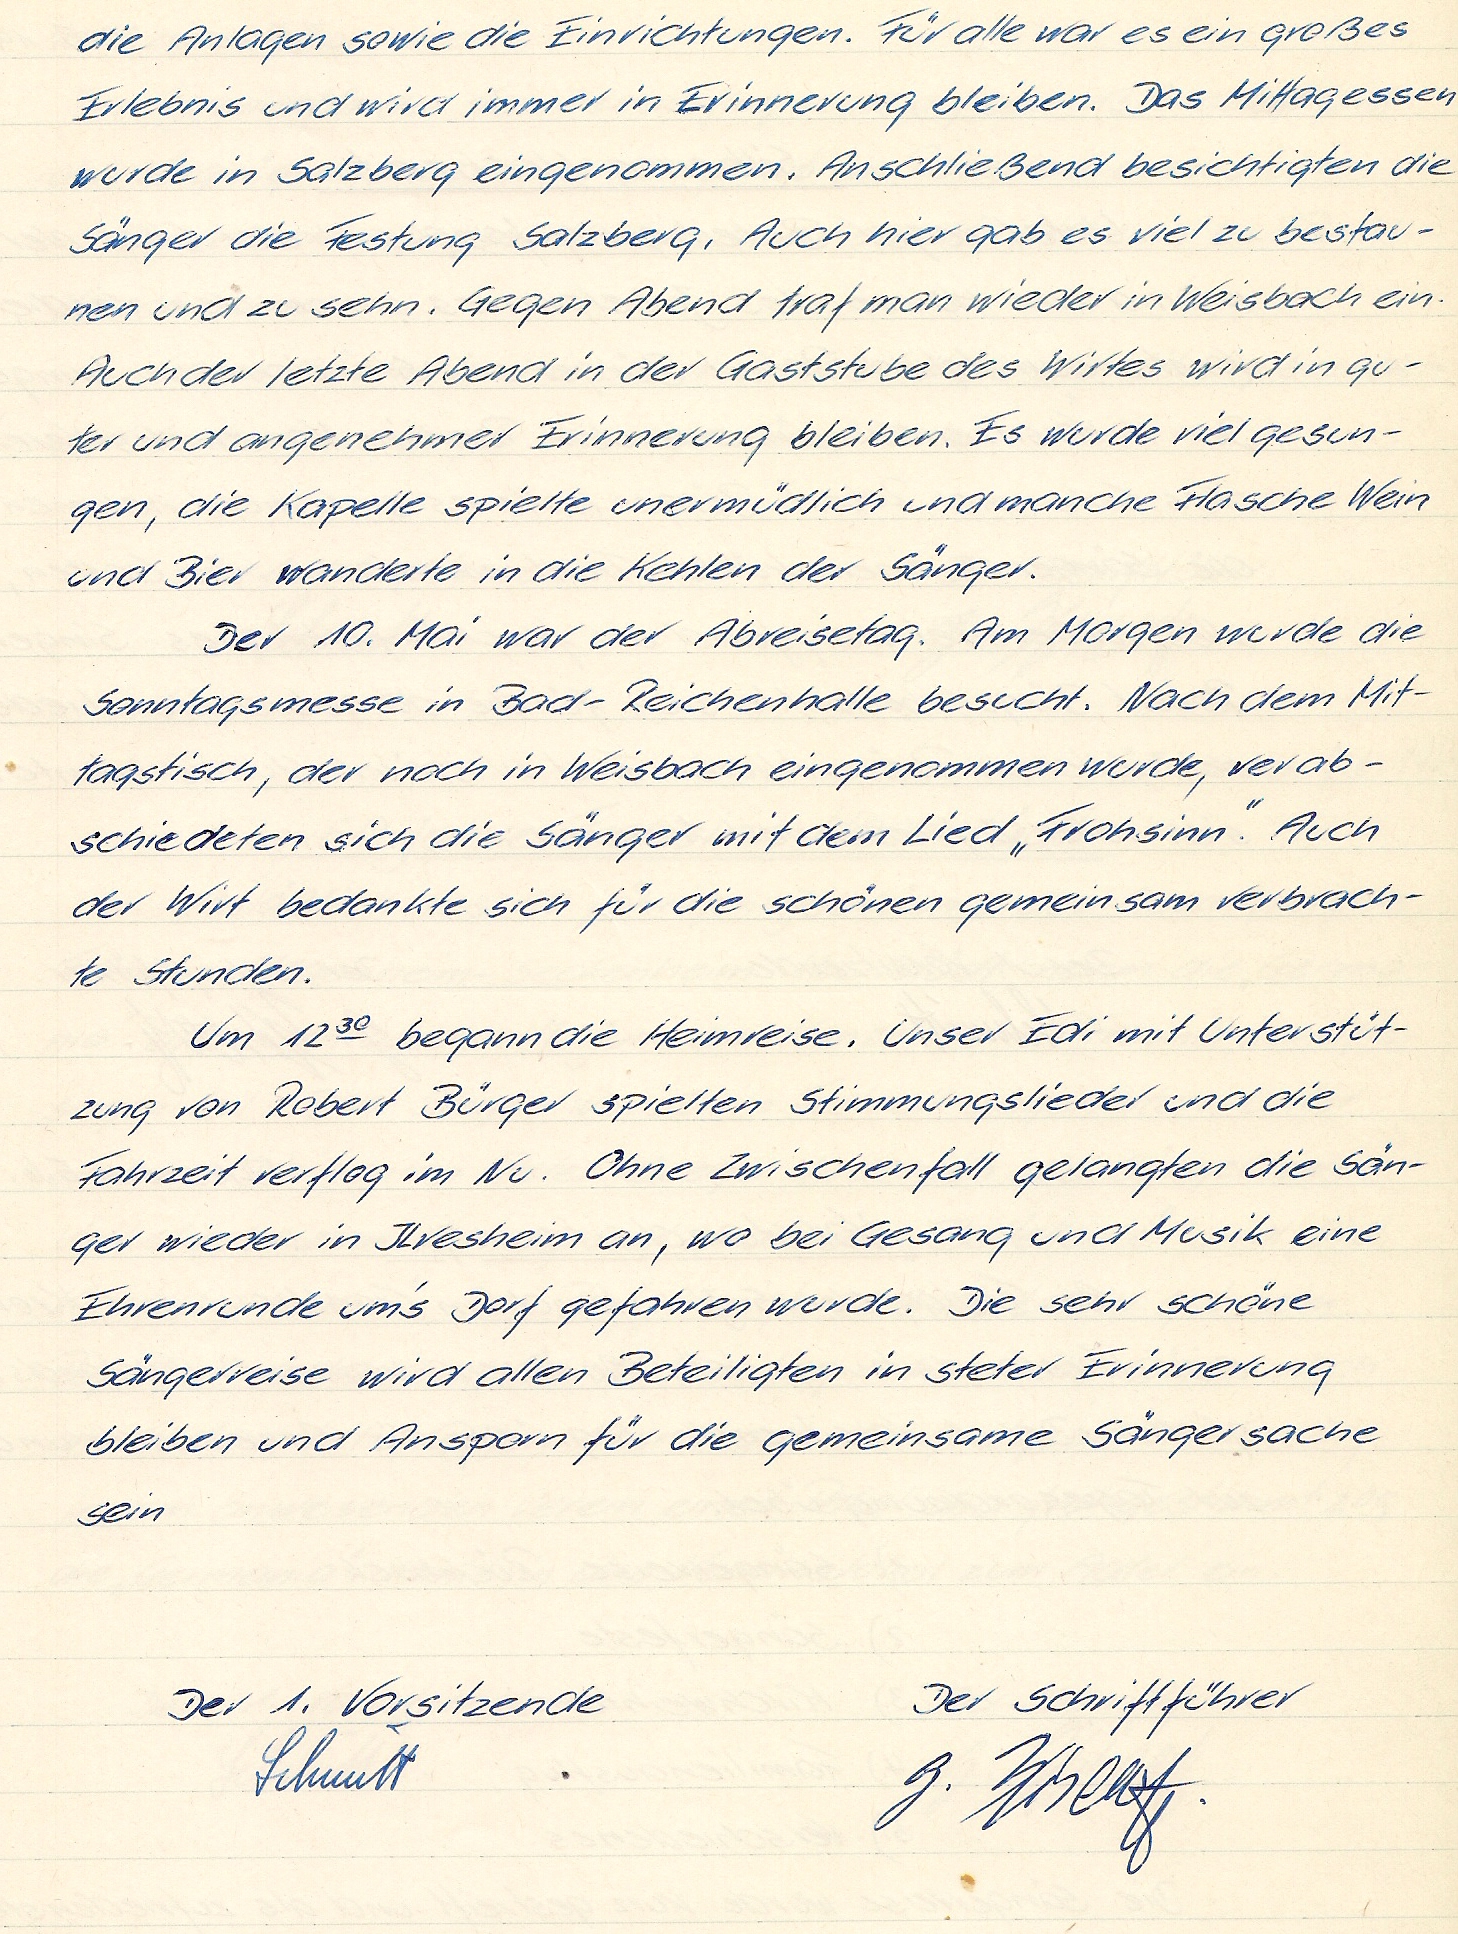 die Anlagen sowie die Einrichtungen. Für alle war es ein großes
Erlebnis und wird immer in Erinnerung bleiben. Das Mittagessen
wurde in Salzberg eingenommen. Anschließend besichtigten die
Sänger die Festung Salzberg. Auch hier gab es viel zu bestau-
nen und zu sehn. Gegen Abend traf man wieder in Weisbach ein.
Auch der letzte Abend in der Gaststube des Wirtes wird in gu-
ter und angenehmer Erinnerung bleiben. Es wurde viel gesun-
gen, die Kapelle spielte unermüdlich und manche Flasche Wein
und Bier wanderte in die Kehlen der Sänger.
Der 10. Mai war der Abreisetag. Am Morgen wurde die
Sonntagsmesse in Bad-Reichenhalle besucht. Nach dem Mit-
tagstisch, der noch in Weisbach eingenommen wurde, verab-
schiedeten sich die Sänger mit dem Lied „Frohsinn". Auch
der Wirt bedankte sich für die schönen gemeinsam verbrach-
te Stunden.
Um 12³⁰ begann die Heimreise. Unser Edi mit Unterstüt-
zung von Robert Bürger spielten Stimmungslieder und die
Fahrzeit verflog im Nu. Ohne Zwischenfall gelangten die Sän-
ger wieder in Ilvesheim an, wo bei Gesang und Musik eine
Ehrenrunde um's Dorf gefahren wurde. Die sehr schöne
Sängerreise wird allen Beteiligten in steter Erinnerung
bleiben und Ansporn für die gemeinsame Sängersache
sein
Der 1. Vorsitzende Der Schriftführer
Schmitt G.